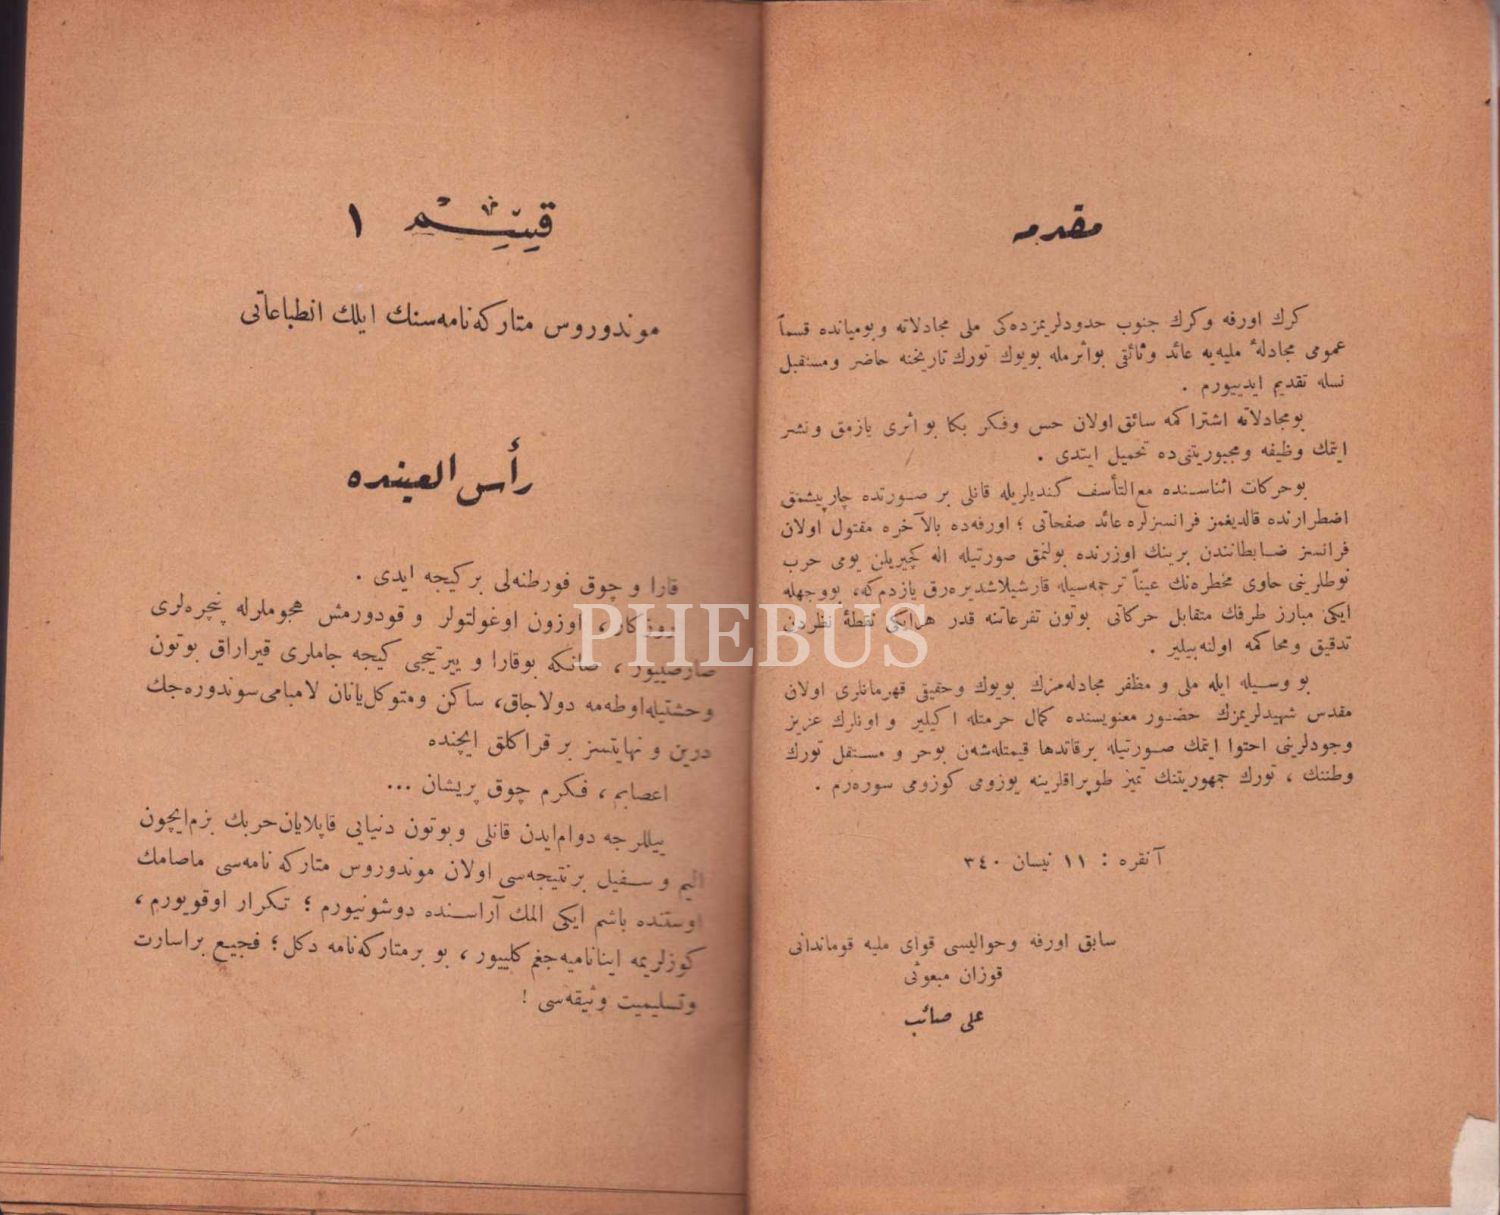 مقدمه
كرك اورفه وكرك جنوب حدودلريمزده‌كى ملى مجادلاته وبوميانده قسماً
عمومى مجادلهٔ مليه‌يه عائد وثائقى بواثرمله بويوك تورك تاريخنه حاضر ومستقبل
نسله تقديم ايدييورم .
بومجادلاته اشتراكمه سائق اولان حس وفكر بكا بو اثرى يازمق ونشر
ايتمك وظيفه ومجبوريتنى‌ده تحميل ايتدى .
بوحركات اثناسنده مع‌التأسف كنديلريله قانلى بر صورتده چارپيشمق
اضطرارنده قالديغمز فرانسزلره عائد صفحاتى ؛ اورفه‌ده بالآخره مقتول اولان
فرانسز ضابطانندن برينك اوزرنده بولنمق صورتيله اله كچيريلن يومى حرب
نوطلرينى حاوى مخطره‌نك عيناً ترجمه‌سيله قارشيلاشديره‌رق يازدم‌كه، بووجهله
ايكى مبارز طرفك متقابل حركاتى بوتون تفرعاتنه قدر هرايكى نقطهٔ نظردن
تدقيق ومحاكمه اولنه‌بيلير .
بو وسيله ايله ملى و مظفر مجادله‌مزك بويوك وحقيقى قهرمانلرى اولان
مقدس شهيدلريمزك حضور معنويسنده كمال حرمتله اكيلير و اونلرك عزيز
وجودلرينى احتوا ايتمك صورتيله برقاتدها قيمتله‌شه‌ن بوحر و مستقل تورك
وطننك ، تورك جمهوريتنك تميز طوپراقلرينه يوزومى كوزومى سوره‌رم .
آنقره : ١١ نيسان ٣٤٠
سابق اورفه وحواليسى قواى مليه قوماندانى
قوزان مبعوثى
على صائب
قيسيم ١
موندوروس متاركه‌نامه‌سنك ايلك انطباعاتى
رأس العينده
قارا و چوق فورطنه‌لى بركيجه ايدى .
روزكار، اوزون اوغولتولر و قودورمش هجوملرله پنجره‌لرى
صارصييور ، صانكه بوقارا و ييرتيجى كيجه جاملرى قيراراق بوتون
وحشتيله‌اوطه‌مه دولاجاق، ساكن ومتوكل‌يانان لامبامى‌سوندوره‌جك
درين و نهايتسز بر قراكلق ايچنده
اعصابم ، فكرم چوق پريشان ...
ييللرجه دوام‌ايدن قانلى وبوتون دنيايى قاپلايان‌حربك بزم‌ايچون
اليم و سفيل برنتيجه‌سى اولان موندوروس متاركه نامه‌سى ماصامك
اوستنده باشم ايكى المك آراسنده دوشونيورم ؛ تكرار اوقويورم ،
كوزلريمه اينانميه‌جغم كلييور ، بو برمتاركه‌نامه دكل ؛ فجيع براسارت
وتسليميت وثيقه‌سى !
PHEBUS